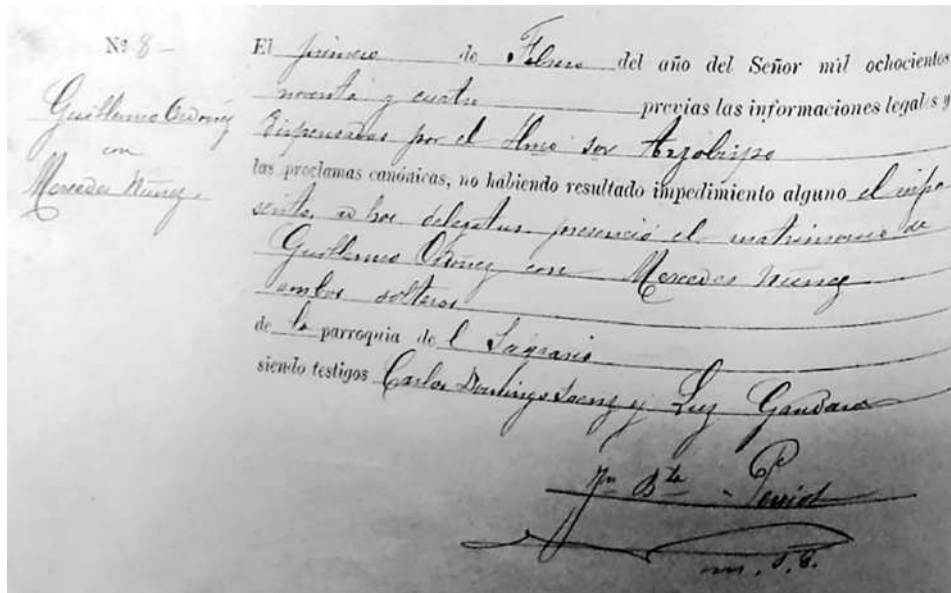 Nº 8 -
Guillermo Ordoñez
con
Mercedes Nuñez.
El primero de Febrero del año del Señor mil ochocientos
noventa y cuatro previas las informaciones legales y
dispensadas por el Ilmo Sor Arzobispo
las proclamas canónicas, no habiendo resultado impedimento alguno el infra
scrito, ad hoc delegatus, presenció el matrimonio de
Guillermo Ordoñez con Mercedes Nuñez
ambos solteros
de la parroquia de l Sagrario
siendo testigos Carlos Domingo Saenz y Luz Gandara
Jn Bta